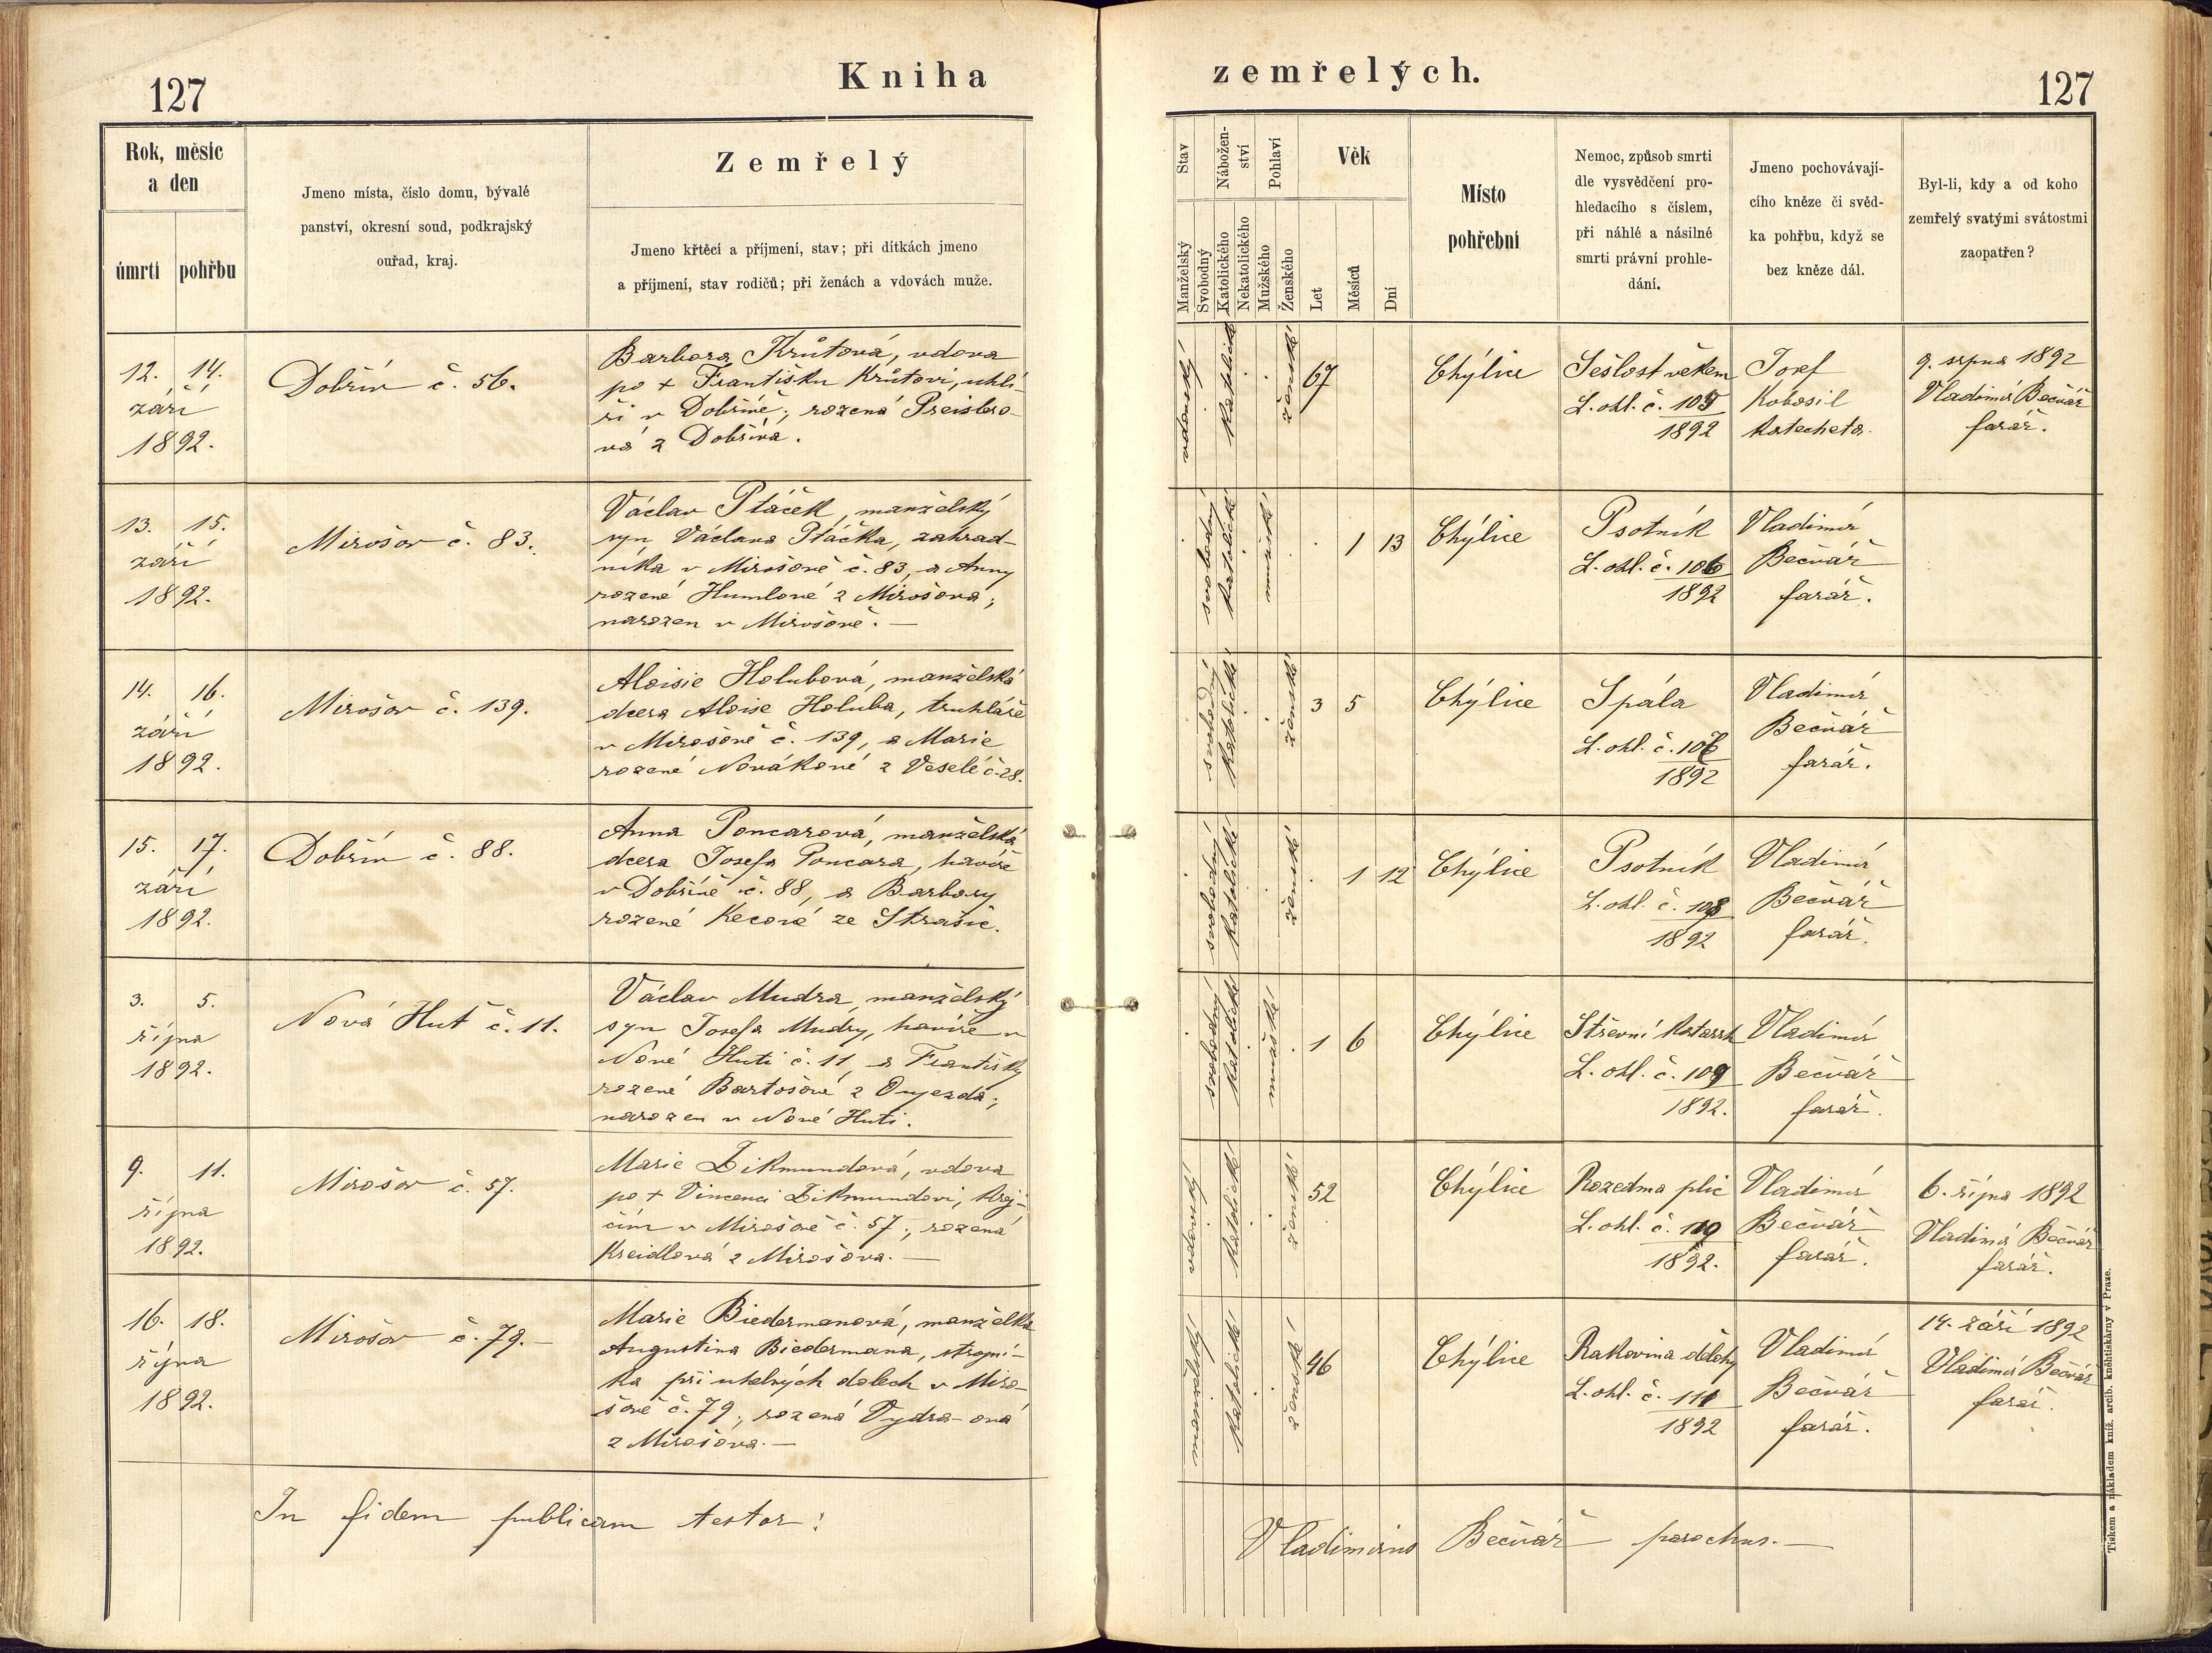 127
Kniha
zemřelých.
127
Rok, měsíc
a den
úmrtí
pohřbu
Jmeno místa, číslo domu, bývalé
panství, okresní soud, podkrajský
ouřad, kraj.
Zemřelý
Jmeno křtěcí a příjmení, stav; při dítkách jmeno
a příjmení, stav rodičů; při ženách a vdovách muže.
Stav
Nábožen-
ství
Pohlaví
Věk
Manželský
Svobodný
Katolického
Nekatolického
Mužského
Ženského
Let
Měsíců
Dní
Místo
pohřební
Nemoc, způsob smrti
dle vysvědčení pro-
hledacího s číslem,
při náhlé a násilné
smrti právní prohle-
dání.
Jmeno pochovávají-
cího kněze či svěd-
ka pohřbu, když se
bez kněze dál.
Byl-li, kdy a od koho
zemřelý svatými svátostmi
zaopatřen?
12. 14.
září
1892.
Dobřív č. 56.
Barbora Krůtová, vdova
po + Františku Krůtovi, uhlí-
ři v Dobřívě; rozená Preislero-
vá z Dobříva.
vdovský
katolické
ženské
67
Chýlice
Sešlost věkem
L. ohl. č. 105
1892
Josef
Kohosil
katecheta.
9. srpna 1892
Vladimír Bečvář
farář.
13. 15.
září
1892.
Mirošov č. 83.
Václav Ptáček, manželský
syn Václava Ptáčka, zahrad-
níka v Mirošově č. 83, a Anny
rozené Humlové z Mirošova;
narozen v Mirošově. —
svobodný
katolické
mužské
1 13
Chýlice
Psotník
L. ohl. č. 106
1892
Vladimír
Bečvář
farář.
14. 16.
září
1892.
Mirošov č. 139.
Aloisie Holubová, manželská
dcera Aloise Holuba, truhláře
v Mirošově č. 139, a Marie
rozené Novákové z Veselé č. 28.
svobodný
katolické
ženské
3 5
Chýlice
Spála
L. ohl. č. 107
1892
Vladimír
Bečvář
farář.
15. 17.
září
1892.
Dobřív č. 88.
Anna Poncarová, manželská
dcera Josefa Poncara, havíře
v Dobřívě č. 88, a Barbory
rozené Kecové ze Strašic.
svobodný
katolické
ženské
1 12
Chýlice
Psotník
L. ohl. č. 108
1892
Vladimír
Bečvář
farář.
3. 5.
října
1892.
Nová Huť č. 11.
Václav Mudra, manželský
syn Josefa Mudry, havíře v
Nové Huti č. 11, a Františky
rozené Bartošové z Oujezda;
narozen v Nové Huti.
svobodný
katolické
mužské
1 6
Chýlice
Střevní katarrh
L. ohl. č. 109
1892.
Vladimír
Bečvář
farář.
9. 11.
října
1892.
Mirošov č. 57.
Marie Zikmundová, vdova
po + Vincenci Zikmundovi, krej-
čím v Mirošově č. 57; rozená
Kreidlová z Mirošova. —
vdovský
katolické
ženské
52
Chýlice
Rozedma plic
L. ohl. č. 110
1892.
Vladimír
Bečvář
farář.
6. října 1892
Vladimír Bečvář
farář.
16. 18.
října
1892.
Mirošov č. 79. —
Marie Biedermanová, manželka
Augustina Biedermana, strojní-
ka při uhelných dolech v Miro-
šově č. 79; rozená Vydra-ová
z Mirošova. —
manželský
katolické
ženské
46
Chýlice
Rakovina dělohy
L. ohl. č. 111
1892
Vladimír
Bečvář
farář.
14. září 1892
Vladimír Bečvář
farář.
In fidem publicam testor:
Vladimirus Bečvář parochus. —
Tiskem a nákladem kníž. arcib. kněhtiskárny v Praze.